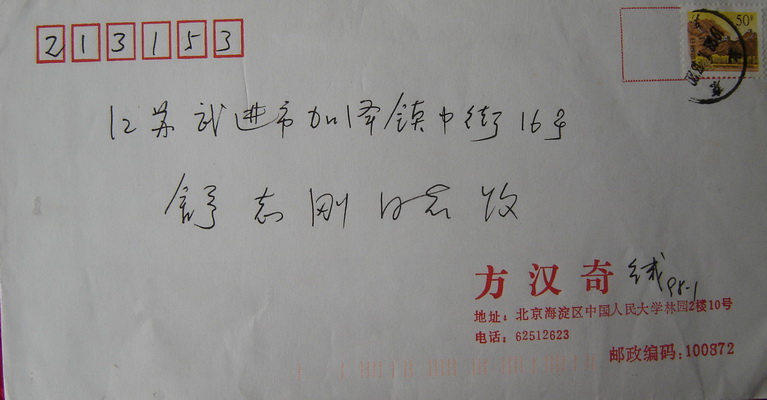 213153
50分
江苏武进市加泽镇中街16号
舒志刚同志收
方汉奇 缄 98.1
地址：北京海淀区中国人民大学林园2楼10号
电话：62512623
邮政编码：100872